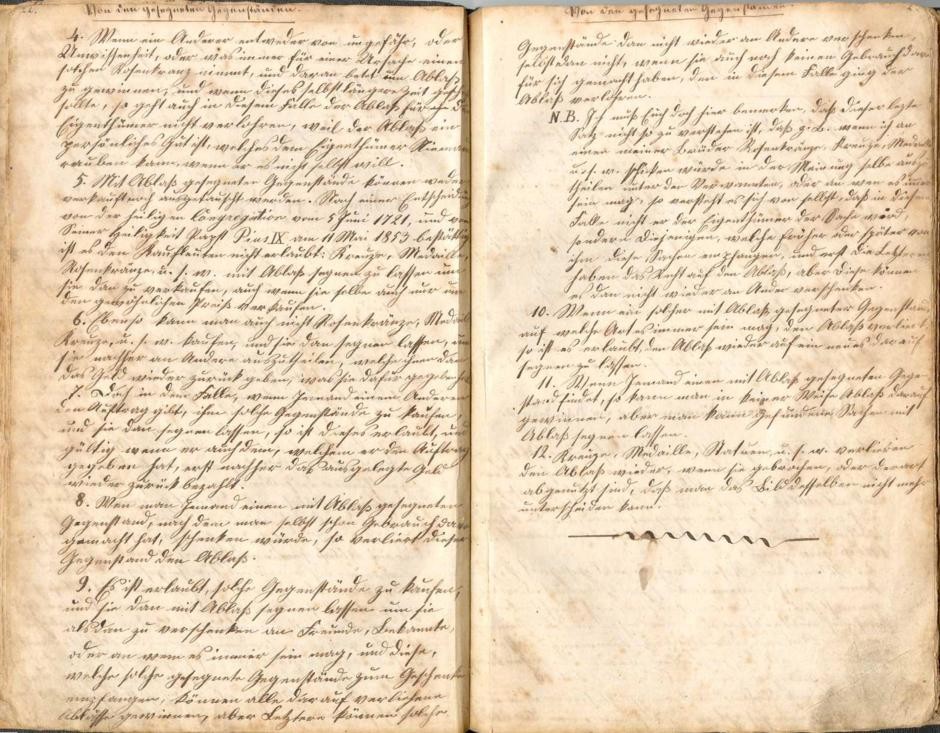 Von den gesegneten Gegenständen.
4. Wenn ein Anderer entweder von ungefähr, oder
Unwissenheit, oder was immer für einer Ursache einen
solchen Rosenkranz nimmt, und daran betet um Ablaß
zu gewinnen, und wenn dieses selbst längere Zeit
sollte, so geht auch in diesem Falle der Ablaß für
Eigenthümer nicht verlohren, weil der Ablaß ein
persönliches Gut ist, welches dem Eigenthümer
rauben kann, wenn er es nicht selbst will.
5. Mit Ablaß gesegneter Gegenstände können weder
verkauft noch ausgetauscht werden. Nach einer
von der heiligen Congregation vom 5 Juni 1721, und von
Seiner Heiligkeit Papst Pius IX am 11 Mai 1853
ist es den Kaufleuten nicht erlaubt: Kreuze, Medaille,
Rosenkränze, u. s. w. mit Ablaß segnen zu lassen um
sie dan zu verkaufen, auch wenn sie selbe auch nur um
den gewöhnlichen Preiß verkaufen.
6. Ebenso kann man auch nicht Rosenkränze,
Kreuze, u. s. w. kaufen, und sie dan segnen lassen,
sie nachher an Andere auszutheilen, welche ihm dan
das Geld wieder zurück geben, was sie dafür gegeben
7. Doch in dem Falle, wenn Jemand einem Anderen
den Auftrag gibt, ihm solche Gegenstände zu kaufen,
und sie dan segnen lassen, so ist dieses erlaubt, und
gültig wenn er auch dem, welchem er den Auftrag
gegeben hat, erst nachher das ausgelegte Geld
wieder zurück bezahlt.
8. Wen man Jemand einen mit Ablaß gesegneten
Gegenstand, nach dem man selbst schon Gebrauch
gemacht hat, schenken würde, so verliert dieser
Gegenstand den Ablaß.
9. Es ist erlaubt, solche Gegenstände zu kaufen,
und sie dan mit Ablaß segnen lassen um sie
alsdan zu verschenken an Freunde, Bekannte,
oder an wem es immer sein mag, und diese,
welche solche gesegnete Gegenstände zum Geschenke
empfangen, können alle darauf verliehene
Ablässe gewinnen, aber Letztere können solche
Von den gesegneten Gegenständen.
Gegenstände dan nicht wieder an Andere verschenken,
selbst dan nicht, wenn sie auch noch keinen Gebrauch
für sich gemacht haben, den in diesem Falle ging der
Ablaß verlohren.
N.B. Ich muß Euch doch hier bemerken, daß dieser letzte
Satz nicht so zu verstehen ist, daß z. B. wenn ich an
einen meiner Brüder Rosenkränze, Kreuze,
u. s. w. schicken würde in der Meinung selbe
theilen unter den Verwandten, oder an wen es immer
sein mag, so versteht es sich von selbst, daß in diesem
Falle nicht er der Eigenthümer der Sache wird,
sondern Diejenigen, welche früher oder später von
ihm diese Sachen empfangen, und erst die Letzteren
haben das Recht auf den Ablaß, aber diese können
es dan nicht wieder an Ander verschenken.
10. Wenn ein solcher mit Ablaß gesegneter Gegenstand
auf welche Art es immer sein mag, den Ablaß verliert
so ist es erlaubt, den Ablaß wieder auf ein neues darauf
segnen zu lassen.
11. Wenn Jemand einen mit Ablaß gesegneten
stand findet, so kann man in keiner Weise Ablaß darauf
gewinnen, aber man kann gefundene Sachen mit
Ablaß segnen lassen.
12. Kreuze, Medaille, Statuen, u. s. w. verlieren
den Ablaß wieder, wenn sie gebrochen, oder derart
abgenutzt sind, daß man das Bild desselben nicht mehr
unterscheiden kann.